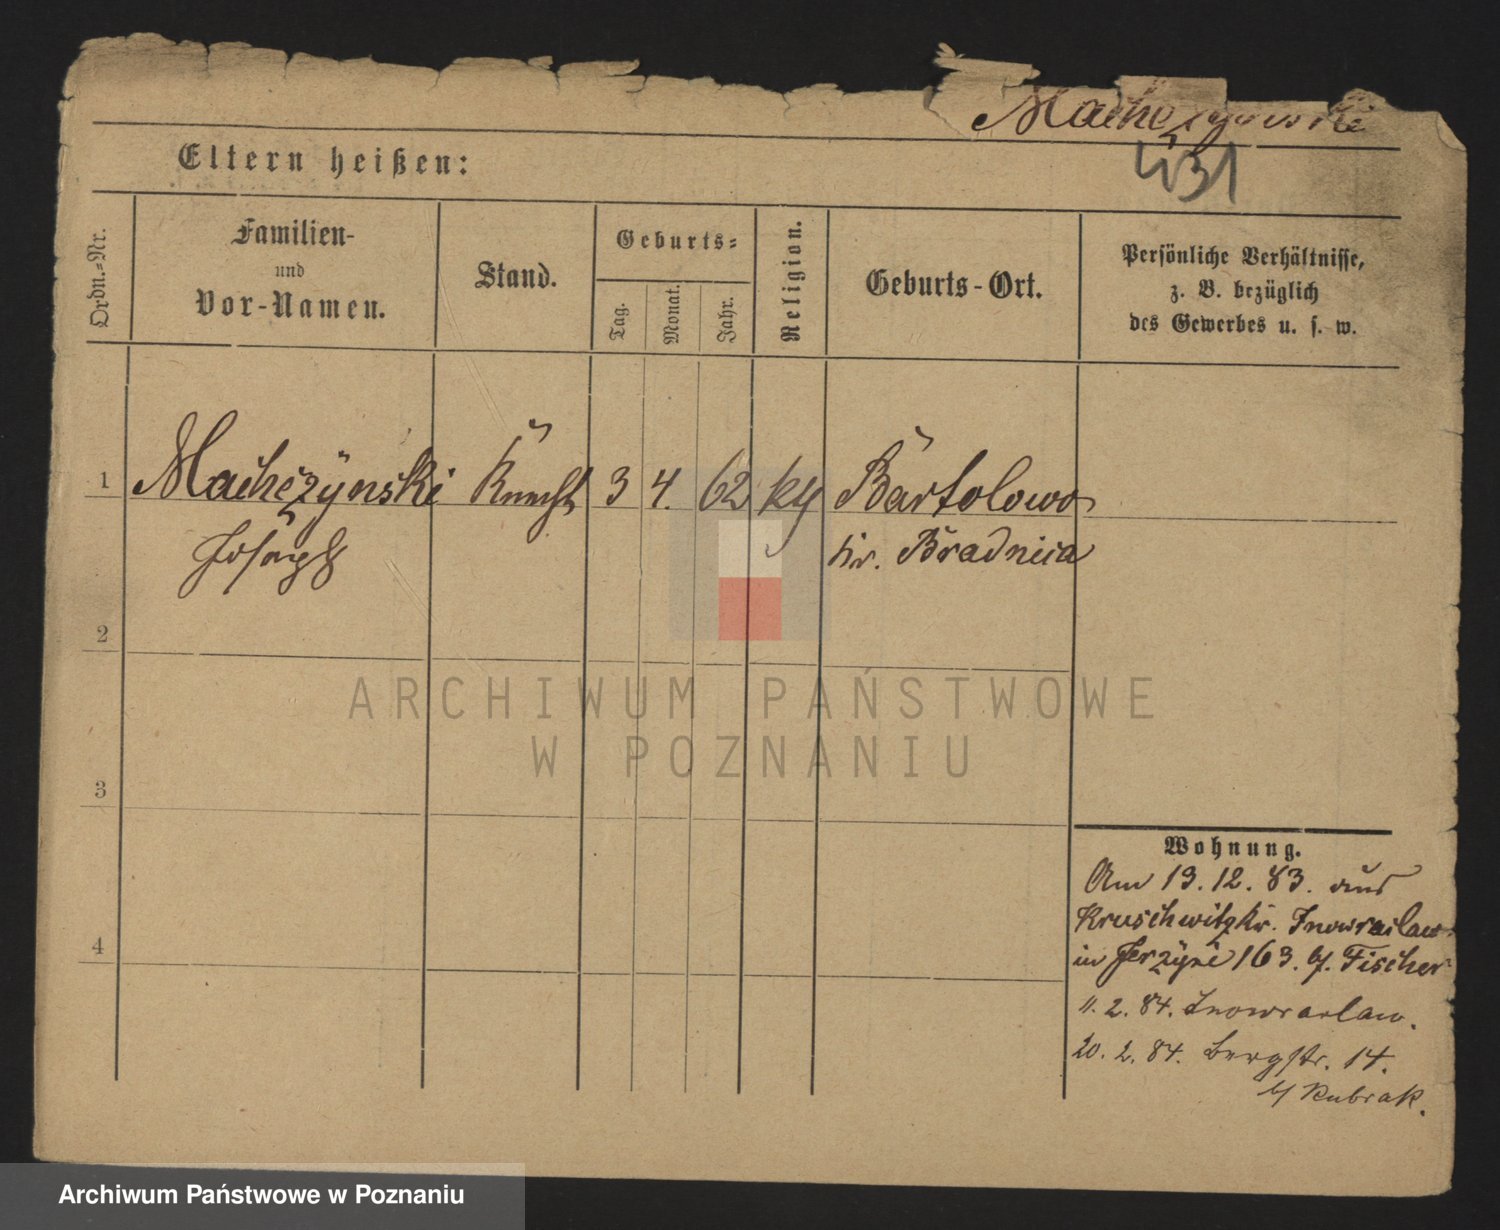 Machczynski
431
Eltern heißen:
Ordn.-Nr.
Familien-
und
Vor-Namen.
Stand.
Geburts-
Tag.
Monat.
Jahr.
Religion.
Geburts-Ort.
Persönliche Verhältnisse,
z. B. bezüglich
des Gewerbes u. s. w.
1 Machczÿnski Knecht 3 4. 62 Bartolowo
Joseph kr. Bradnica
2
3
4
Wohnung.
Am 13. 12. 83. aus
Kruschwitz kr. Inowraclaw
in Jerzyce 163. b/. Fischer
11. 2. 84. Inowraclaw.
20. 2. 84. Bergstr. 14.
b/ Kubrak.
ARCHIWUM PAŃSTWOWE
W POZNANIU
Archiwum Państwowe w Poznaniu